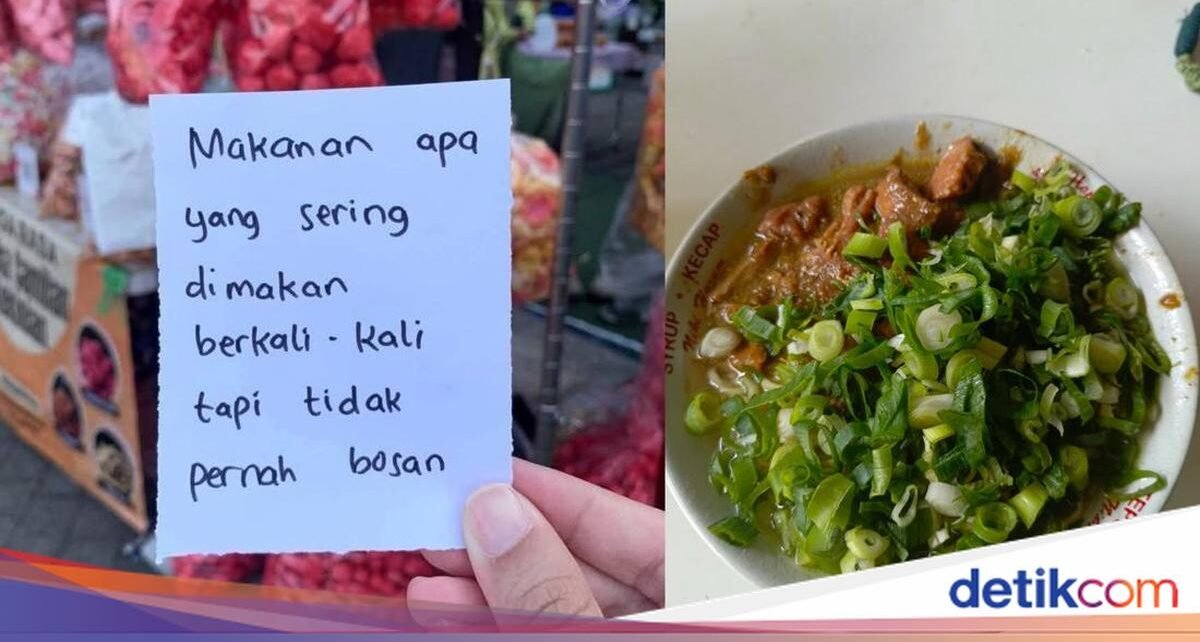 Makanan apa
yang sering
dimakan
berkali-kali
tapi tidak
pernah bosan
SYRUP • KECAP
detikcom